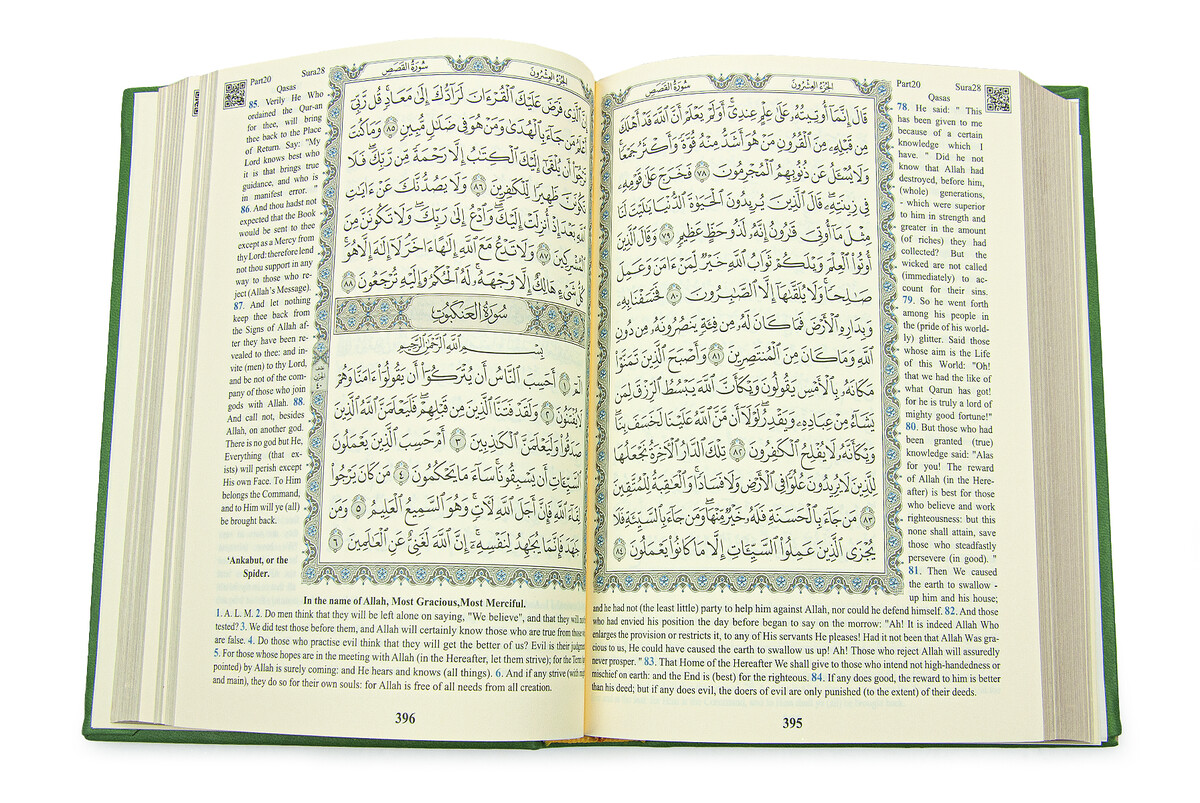 Part20
Sura28
Qasas
سُورَةُ القَصَصِ
الجُزءُ العِشْرُونَ
قَالَ إِنَّمَآ أُوتِيتُهُۥ عَلَىٰ عِلْمٍ عِندِىٓ ۚ أَوَلَمْ يَعْلَمْ أَنَّ ٱللَّهَ قَدْ أَهْلَكَ
مِن قَبْلِهِۦ مِنَ ٱلْقُرُونِ مَنْ هُوَ أَشَدُّ مِنْهُ قُوَّةً وَأَكْثَرُ جَمْعًا ۚ
وَلَا يُسْـَٔلُ عَن ذُنُوبِهِمُ ٱلْمُجْرِمُونَ ٧٨ فَخَرَجَ عَلَىٰ قَوْمِهِۦ
فِى زِينَتِهِۦ ۖ قَالَ ٱلَّذِينَ يُرِيدُونَ ٱلْحَيَوٰةَ ٱلدُّنْيَا يَٰلَيْتَ لَنَا
مِثْلَ مَآ أُوتِىَ قَٰرُونُ إِنَّهُۥ لَذُو حَظٍّ عَظِيمٍ ٧٩ وَقَالَ ٱلَّذِينَ
أُوتُوا۟ ٱلْعِلْمَ وَيْلَكُمْ ثَوَابُ ٱللَّهِ خَيْرٌ لِّمَنْ ءَامَنَ وَعَمِلَ
صَٰلِحًا وَلَا يُلَقَّىٰهَآ إِلَّا ٱلصَّٰبِرُونَ ٨٠ فَخَسَفْنَا بِهِۦ
وَبِدَارِهِ ٱلْأَرْضَ فَمَا كَانَ لَهُۥ مِن فِئَةٍ يَنصُرُونَهُۥ مِن دُونِ
ٱللَّهِ وَمَا كَانَ مِنَ ٱلْمُنتَصِرِينَ ٨١ وَأَصْبَحَ ٱلَّذِينَ تَمَنَّوْا۟
مَكَانَهُۥ بِٱلْأَمْسِ يَقُولُونَ وَيْكَأَنَّ ٱللَّهَ يَبْسُطُ ٱلرِّزْقَ لِمَن
يَشَآءُ مِنْ عِبَادِهِۦ وَيَقْدِرُ ۖ لَوْلَآ أَن مَّنَّ ٱللَّهُ عَلَيْنَا لَخَسَفَ بِنَا ۖ
وَيْكَأَنَّهُۥ لَا يُفْلِحُ ٱلْكَٰفِرُونَ ٨٢ تِلْكَ ٱلدَّارُ ٱلْءَاخِرَةُ نَجْعَلُهَا
لِلَّذِينَ لَا يُرِيدُونَ عُلُوًّا فِى ٱلْأَرْضِ وَلَا فَسَادًا ۚ وَٱلْعَٰقِبَةُ لِلْمُتَّقِينَ
٨٣ مَن جَآءَ بِٱلْحَسَنَةِ فَلَهُۥ خَيْرٌ مِّنْهَا ۖ وَمَن جَآءَ بِٱلسَّيِّئَةِ فَلَا
يُجْزَى ٱلَّذِينَ عَمِلُوا۟ ٱلسَّيِّـَٔاتِ إِلَّا مَا كَانُوا۟ يَعْمَلُونَ ٨٤
78. He said: " This
has been given to me
because of a certain
knowledge which I
have. " Did he not
know that Allah had
destroyed, before him,
(whole) generations,
- which were superior
to him in strength and
greater in the amount
(of riches) they had
collected? But the
wicked are not called
(immediately) to ac-
count for their sins.
79. So he went forth
among his people in
the (pride of his world-
ly) glitter. Said those
whose aim is the Life
of this World: "Oh!
that we had the like of
what Qarun has got!
for he is truly a lord of
mighty good fortune!"
80. But those who had
been granted (true)
knowledge said: "Alas
for you! The reward
of Allah (in the Here-
after) is best for those
who believe and work
righteousness: but this
none shall attain, save
those who steadfastly
persevere (in good). "
81. Then We caused
the earth to swallow -
up him and his house;
and he had not (the least little) party to help him against Allah, nor could he defend himself. 82. And those
who had envied his position the day before began to say on the morrow: "Ah! It is indeed Allah Who
enlarges the provision or restricts it, to any of His servants He pleases! Had it not been that Allah Was gra-
cious to us, He could have caused the earth to swallow us up! Ah! Those who reject Allah will assuredly
never prosper. " 83. That Home of the Hereafter We shall give to those who intend not high-handedness or
mischief on earth: and the End is (best) for the righteous. 84. If any does good, the reward to him is better
than his deed; but if any does evil, the doers of evil are only punished (to the extent) of their deeds.
395
Part20
Sura28
Qasas
سُورَةُ القَصَصِ
الجُزءُ العِشْرُونَ
إِنَّ ٱلَّذِى فَرَضَ عَلَيْكَ ٱلْقُرْءَانَ لَرَآدُّكَ إِلَىٰ مَعَادٍ ۚ قُل رَّبِّىٓ
أَعْلَمُ مَن جَآءَ بِٱلْهُدَىٰ وَمَنْ هُوَ فِى ضَلَٰلٍ مُّبِينٍ ٨٥ وَمَا كُنتَ
تَرْجُوٓا۟ أَن يُلْقَىٰٓ إِلَيْكَ ٱلْكِتَٰبُ إِلَّا رَحْمَةً مِّن رَّبِّكَ ۖ فَلَا
تَكُونَنَّ ظَهِيرًا لِّلْكَٰفِرِينَ ٨٦ وَلَا يَصُدُّنَّكَ عَنْ ءَايَٰتِ
ٱللَّهِ بَعْدَ إِذْ أُنزِلَتْ إِلَيْكَ ۖ وَٱدْعُ إِلَىٰ رَبِّكَ ۖ وَلَا تَكُونَنَّ مِنَ
ٱلْمُشْرِكِينَ ٨٧ وَلَا تَدْعُ مَعَ ٱللَّهِ إِلَٰهًا ءَاخَرَ ۘ لَآ إِلَٰهَ إِلَّا هُوَ ۚ
كُلُّ شَىْءٍ هَالِكٌ إِلَّا وَجْهَهُۥ ۚ لَهُ ٱلْحُكْمُ وَإِلَيْهِ تُرْجَعُونَ ٨٨
سُورَةُ العَنكَبُوتِ
بِسْمِ ٱللَّهِ ٱلرَّحْمَٰنِ ٱلرَّحِيمِ
الٓمٓ ١ أَحَسِبَ ٱلنَّاسُ أَن يُتْرَكُوٓا۟ أَن يَقُولُوٓا۟ ءَامَنَّا وَهُمْ
لَا يُفْتَنُونَ ٢ وَلَقَدْ فَتَنَّا ٱلَّذِينَ مِن قَبْلِهِمْ ۖ فَلَيَعْلَمَنَّ ٱللَّهُ ٱلَّذِينَ
صَدَقُوا۟ وَلَيَعْلَمَنَّ ٱلْكَٰذِبِينَ ٣ أَمْ حَسِبَ ٱلَّذِينَ يَعْمَلُونَ
ٱلسَّيِّـَٔاتِ أَن يَسْبِقُونَا ۚ سَآءَ مَا يَحْكُمُونَ ٤ مَن كَانَ يَرْجُوا۟
لِقَآءَ ٱللَّهِ فَإِنَّ أَجَلَ ٱللَّهِ لَءَاتٍ ۚ وَهُوَ ٱلسَّمِيعُ ٱلْعَلِيمُ ٥ وَمَن
جَٰهَدَ فَإِنَّمَا يُجَٰهِدُ لِنَفْسِهِۦٓ ۚ إِنَّ ٱللَّهَ لَغَنِىٌّ عَنِ ٱلْعَٰلَمِينَ ٦
85. Verily He Who
ordained the Qur-an
for thee, will bring
thee back to the Place
of Return. Say: "My
Lord knows best who
it is that brings true
guidance, and who is
in manifest error. "
86. And thou hadst not
expected that the Book
would be sent to thee
except as a Mercy from
thy Lord: therefore lend
not thou support in any
way to those who re-
ject (Allah's Message).
87. And let nothing
keep thee back from
the Signs of Allah af-
ter they have been re-
vealed to thee: and in-
vite (men) to thy Lord,
and be not of the com-
pany of those who join
gods with Allah. 88.
And call not, besides
Allah, on another god.
There is no god but He,
Everything (that ex-
ists) will perish except
His own Face. To Him
belongs the Command,
and to Him will ye (all)
be brought back.
'Ankabut, or the
Spider.
In the name of Allah, Most Gracious,Most Merciful.
1. A. L. M. 2. Do men think that they will be left alone on saying, "We believe", and that they will not
tested? 3. We did test those before them, and Allah will certainly know those who are true from those
are false. 4. Do those who practise evil think that they will get the better of us? Evil is their
5. For those whose hopes are in the meeting with Allah (in the Hereafter, let them strive); for the Term
pointed) by Allah is surely coming: and He hears and knows (all things). 6. And if any strive (with
and main), they do so for their own souls: for Allah is free of all needs from all creation.
396